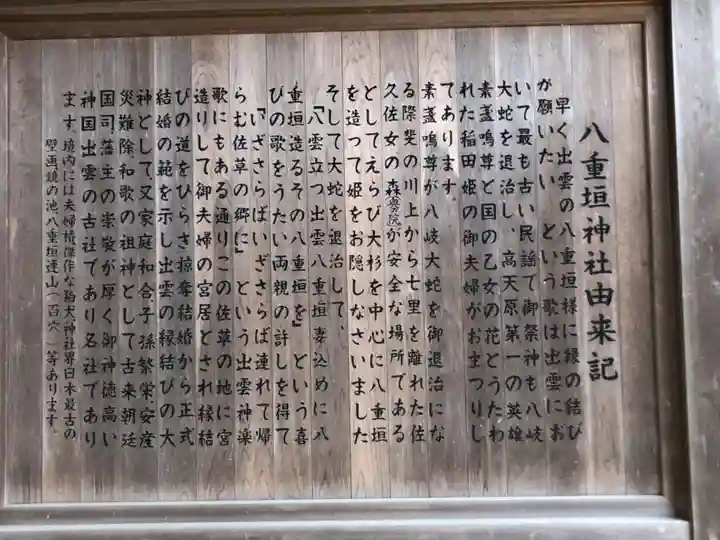 八重垣神社由来記
早く出雲の八重垣様に縁の結び
が願いたい という歌は出雲にお
いて最も古い民謡で御祭神も八岐
大蛇を退治し、高天原第一の英雄
素盞嗚尊と国の乙女の花とうたわ
れた稲田姫の御夫婦がおまつりし
てあります。
素盞嗚尊が八岐大蛇を御退治にな
る際斐の川上から七里を離れた佐
久佐女の森(奥の院)が安全な場所である
としてえらび大杉を中心に八重垣
を造って姫をお隠しなさいました
そして大蛇を退治して、
「八雲立つ出雲八重垣妻込めに八
重垣造るその八重垣を」という喜
びの歌をうたい両親の許しを得て
「いざさらばいざさらば連れて帰
らむ佐草の郷に」という出雲神楽
歌にもある通りこの佐草の地に宮
造りして御夫婦の宮居とされ縁結
びの道をひらき掠奪結婚から正式
結婚の範を示し出雲の縁結びの大
神として又家庭和合子孫繁栄安産
災難除和歌の祖神として古来朝廷
国司藩主の崇敬が厚く御神徳高い
神国出雲の古社であり名社であり
ます。境内には夫婦椿傑作な狛犬神社界日本最古の
壁画鏡の池八重垣連山(百穴)等あります。